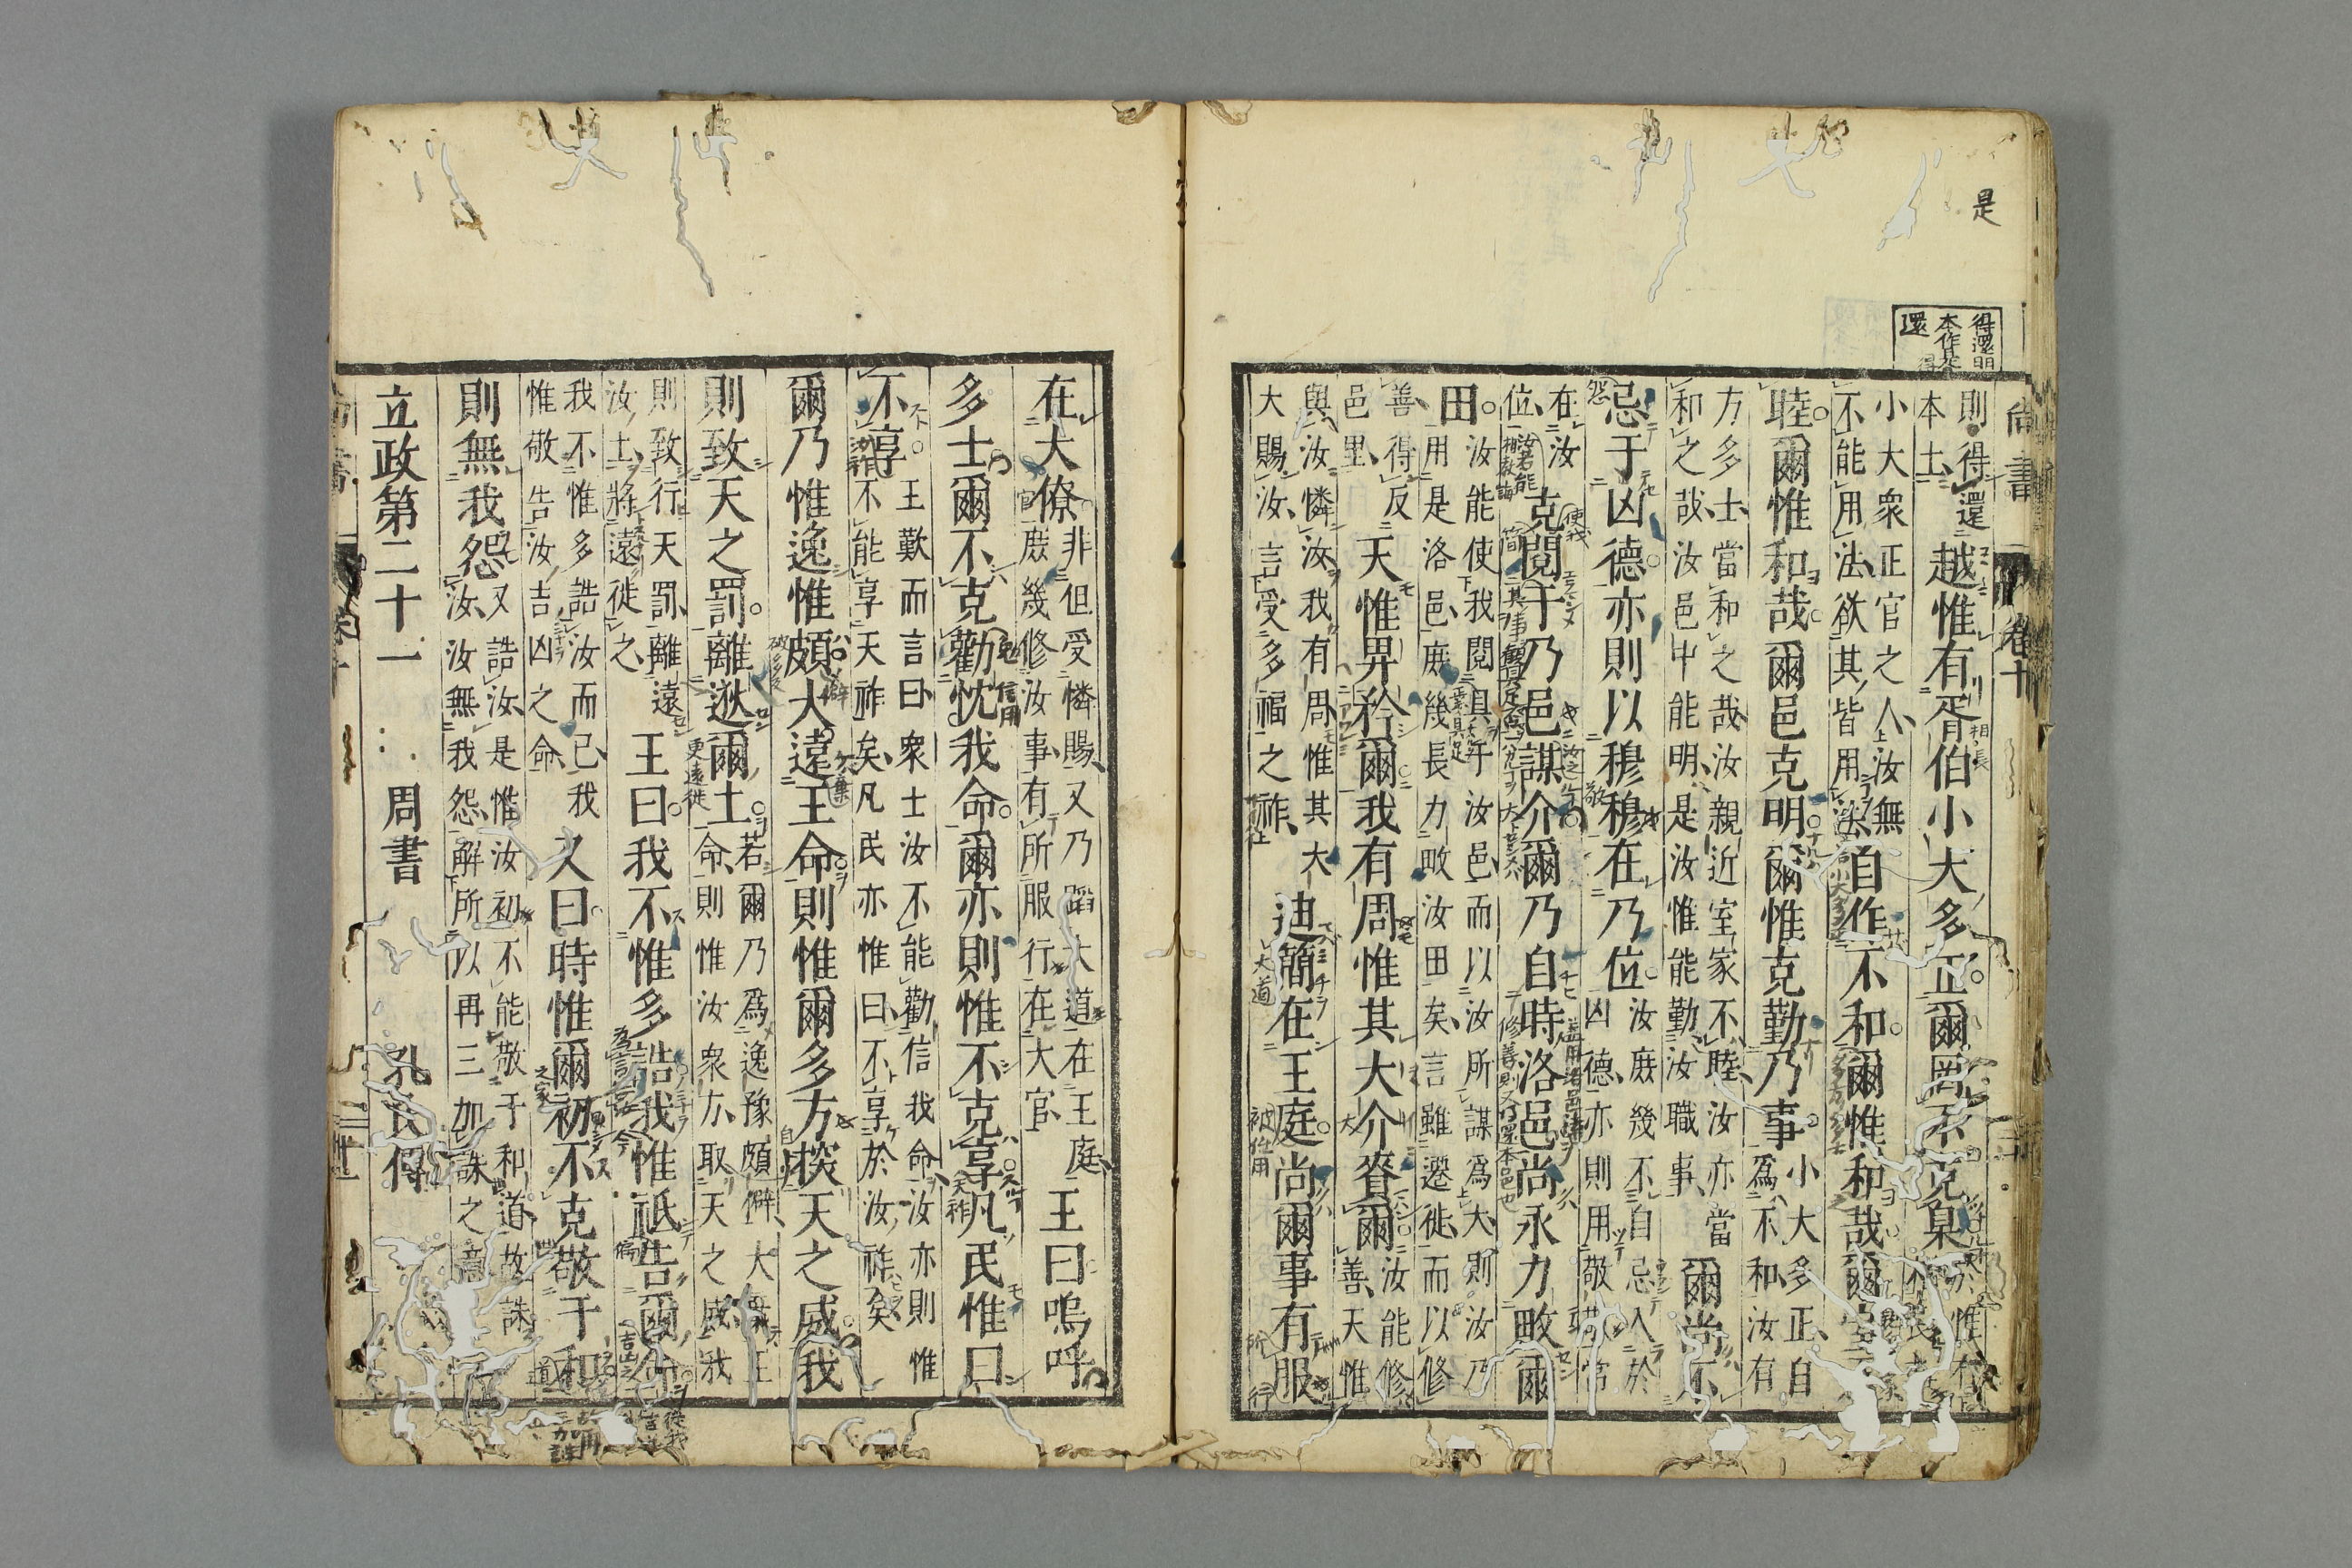 是
得還閩
本作是
還
尚書
卷十
則得還
本土
越惟有胥伯小大多正爾罔不克臬
於惟有
小大衆正官之人汝無
不能用法欲其皆用法
自作不和爾惟和哉爾室
睦爾惟和哉爾邑克明爾惟克勤乃事
小大多正自
爲不和汝有
方多士當和之哉汝親近室家不睦汝亦當
和之哉汝邑中能明是汝惟能勤汝職事
爾尚不
忌于凶德亦則以穆穆在乃位
汝庶幾不自忌入於
凶德亦則用敬常
在汝
位
克閱于乃邑謀介爾乃自時洛邑尚永力畋爾
田
汝能使我閱具于汝邑而以汝所謀爲大則汝乃
用是洛邑庶幾長力畋汝田矣言雖遷徙而以修
善得反
邑里
天惟畀矜爾我有周惟其大介賚爾
汝能修
善天惟
與汝憐汝我有周惟其大
大賜汝言受多福之祚
迪簡在王庭尚爾事有服
在大僚
非但受憐賜又乃蹈大道在王庭
庶幾修汝事有所服行在大官
王曰嗚呼
多士爾不克勸忱我命爾亦則惟不克享凡民惟曰
不享
王歎而言曰衆士汝不能勸信我命汝亦則惟
不能享天祚矣凡民亦惟曰不享於汝祚矣
爾乃惟逸惟頗大遠王命則惟爾多方探天之威我
則致天之罰離逖爾土
若爾乃爲逸豫頗僻大棄王
命則惟汝衆方取天之威我
則致行天罰離遠
汝土將遠徙之
王曰我不惟多誥我惟祗告爾命
我不惟多誥汝而已我
惟敬告汝吉凶之命
又曰時惟爾初不克敬于和
則無我怨
又誥汝是惟汝初不能敬于和道故誅
汝汝無我怨解所以再三加誅之意
立政第二十一
周書
孔氏傳